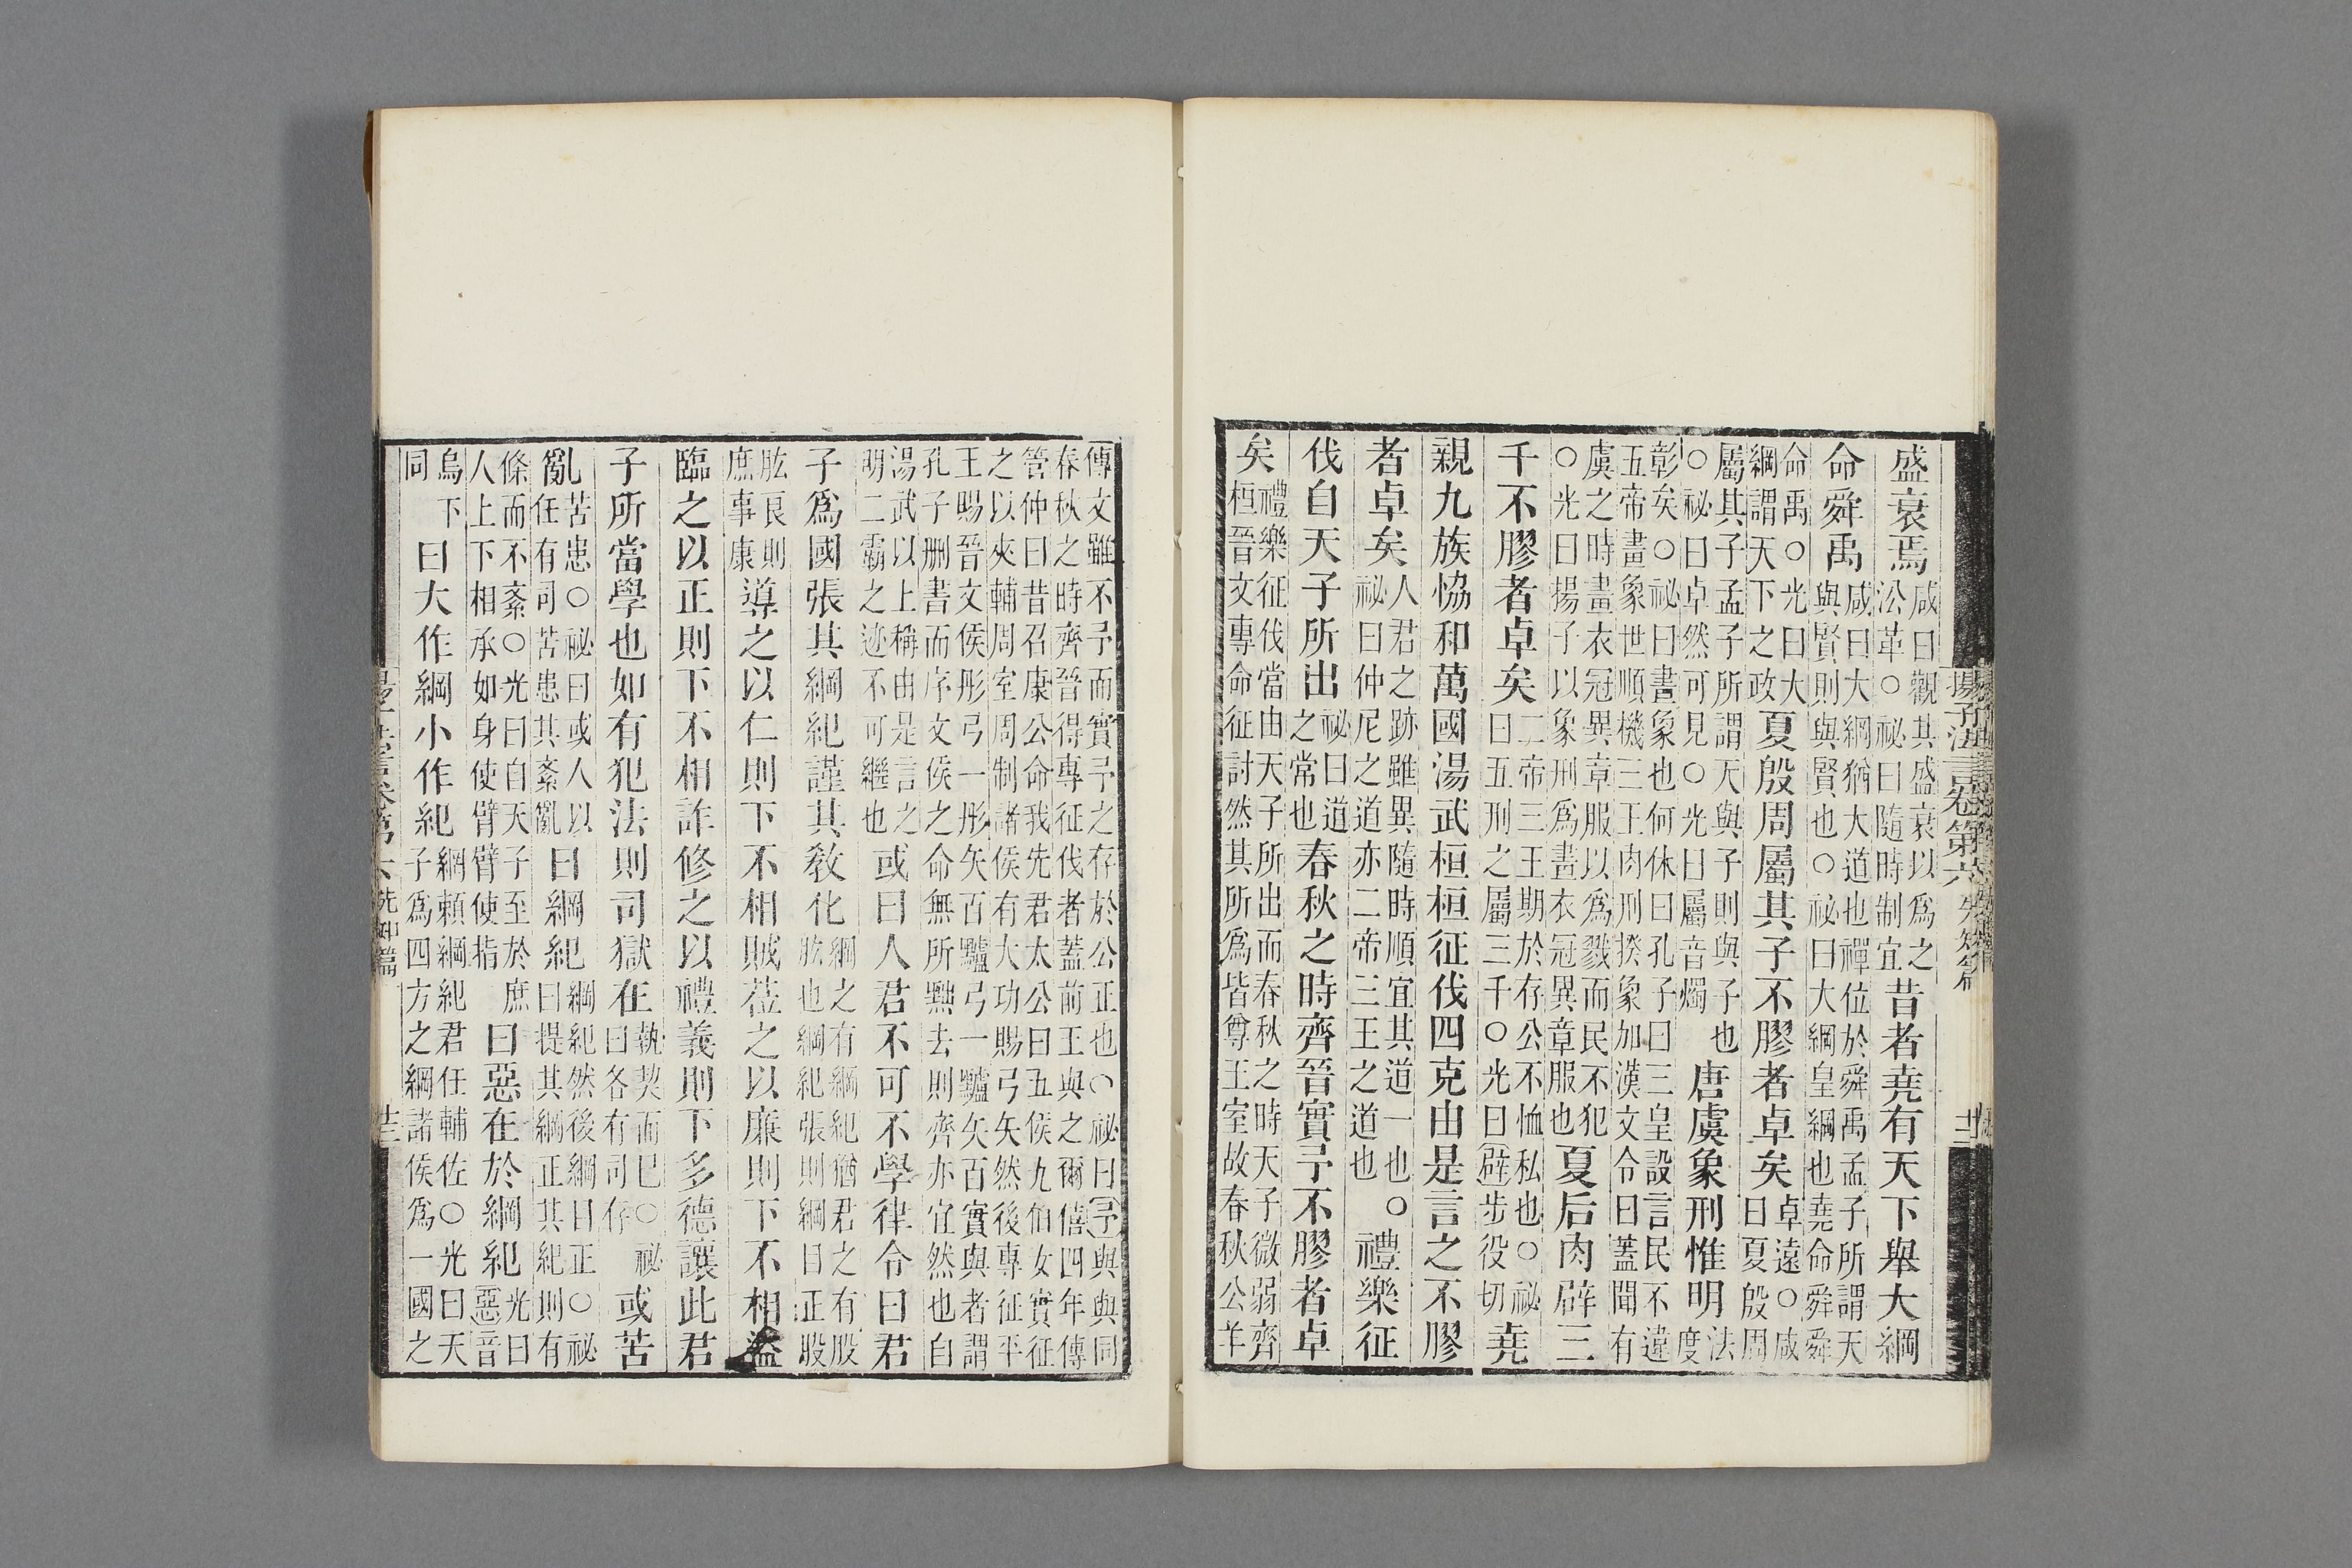 揚子法言卷第六 先知篇
盛衰焉咸曰觀其盛衰以爲之
㳂革○祕曰隨時制宜昔者堯有天下舉大綱
命舜禹咸曰大綱猶大道也禪位於舜禹孟子所謂天
與賢則與賢也○祕曰大綱皇綱也堯命舜舜
命禹○光曰大
綱謂天下之政夏殷周屬其子不膠者卓矣卓遠○咸
曰夏殷周
屬其子孟子所謂天與子則與子也
○祕曰卓然可見○光曰屬音燭唐虞象刑惟明法
度
彰矣○祕曰畫象也何休曰孔子曰三皇設言民不違
五帝畫象世順機三王肉刑揆象加漢文令曰蓋聞有
虞之時畫衣冠異章服以爲戮而民不犯
○光曰揚子以象刑爲畫衣冠異章服也夏后肉辟三
千不膠者卓矣二帝三王期於存公不恤私也○祕
曰五刑之屬三千○光曰辟步役切堯
親九族恊和萬國湯武桓桓征伐四克由是言之不膠
者卓矣人君之跡雖異隨時順宜其道一也○
祕曰仲尼之道亦二帝三王之道也禮樂征
伐自天子所出祕曰道
之常也春秋之時齊晉實予不膠者卓
矣禮樂征伐當由天子所出而春秋之時天子微弱齊
桓晉文專命征討然其所爲皆尊王室故春秋公羊
傳文雖不予而實予之存於公正也○祕曰予與與同
春秋之時齊晉得專征伐者蓋前王與之爾僖四年傳
管仲曰昔召康公命我先君太公曰五侯九伯女實征
之以夾輔周室周制諸侯有大功賜弓矢然後專征平
王賜晉文侯彤弓一彤矢百黸弓一黸矢百實與者謂
孔子刪書而序文侯之命無所黜去則齊亦宜然也自
湯武以上稱由是言之
明二霸之迹不可繼也或曰人君不可不學律令曰君
子爲國張其綱紀謹其敎化綱之有綱紀猶君之有股
肱也綱紀張則綱目正股
肱良則
庶事康導之以仁則下不相賊莅之以廉則下不相盜
臨之以正則下不相詐修之以禮義則下多德讓此君
子所當學也如有犯法則司獄在執契而巳○祕
曰各有司存或苦
亂苦患○祕曰或人以
任有司苦患其紊亂曰綱紀綱紀然後綱目正○祕
曰提其綱正其紀則有
條而不紊○光曰自天子至於庶
人上下相承如身使臂臂使指曰惡在於綱紀光曰
惡音
烏下
同曰大作綱小作紀綱賴綱紀君任輔佐○光曰天
子爲四方之綱諸侯爲一國之